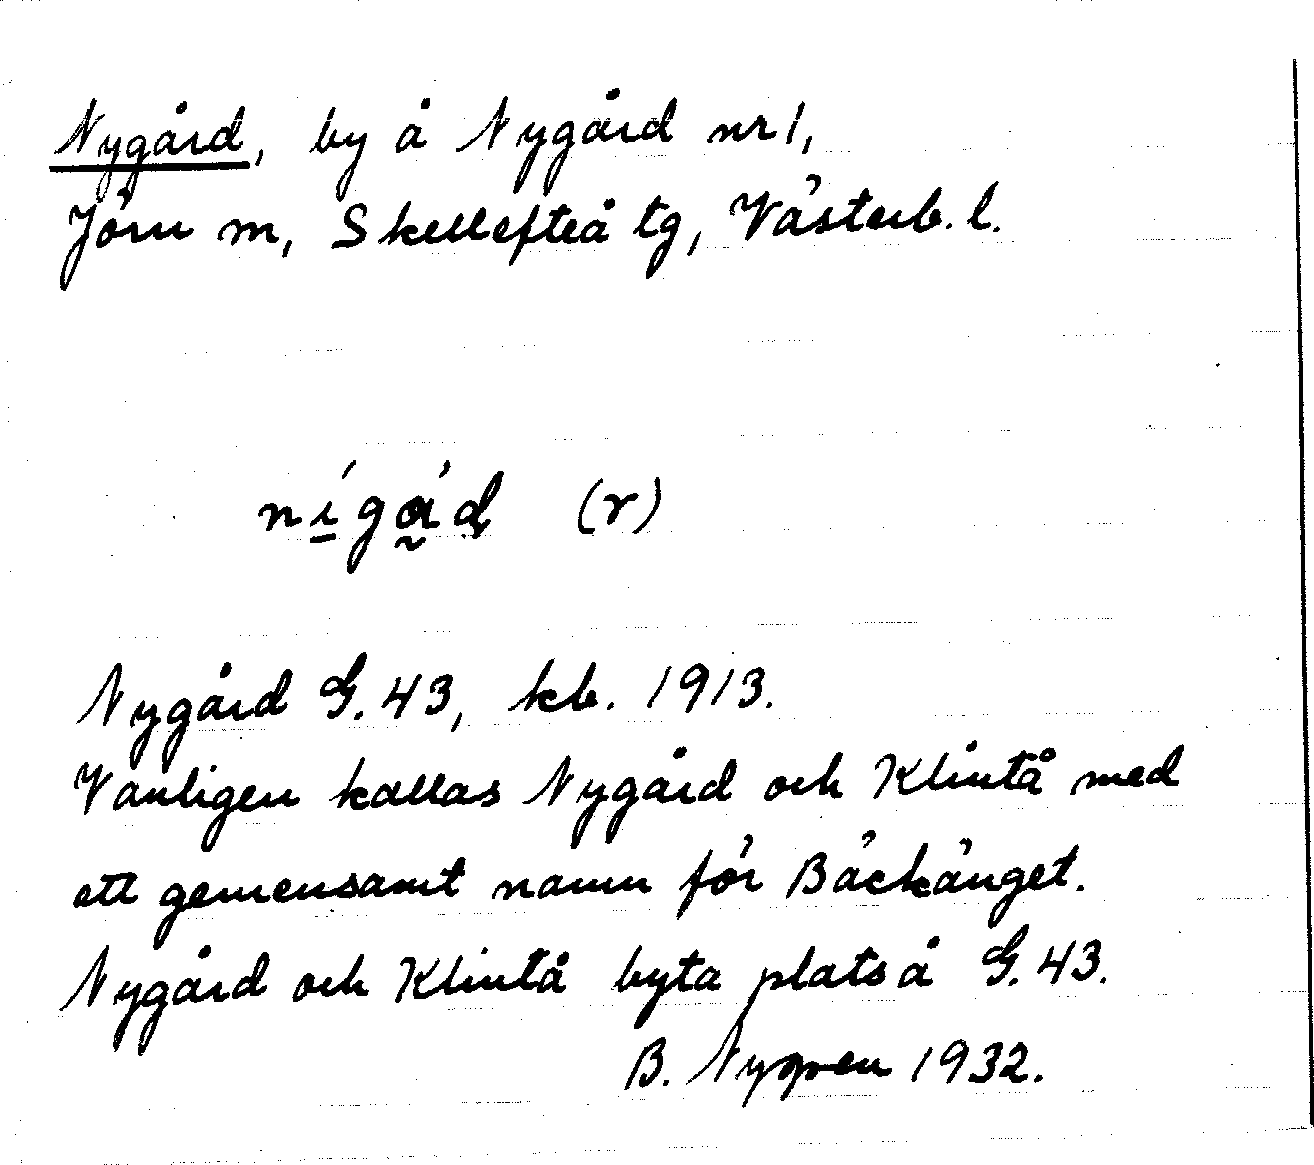 Nygård, by å Nygård nr 1,
Jörn sn, Skellefteå tg, Västerb. l.
(r)
Nygård G. 43, kb. 1913.
Vanligen kallas Nygård och Klintå med
ett gemensamt namn för Bäckänget.
Nygård och Klintå byta plats å G. 43.
B. Nygren 1932.